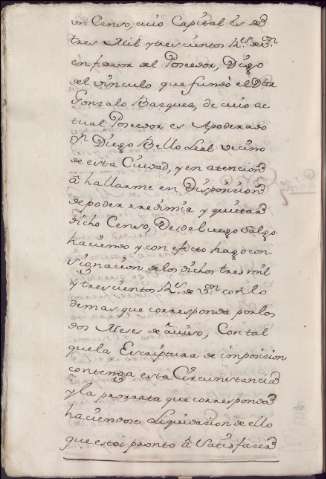 un Censo, cuio Capital es de
tres Mil y trescientos Rs. de Vn.
en favor del Posehedor, Digo
del vinculo que fundó el Dtor
Gonzalo Bazquez, de cuio ac
tual Posehedor es Apoderado
Dn. Diego Bello Leal vecino
de esta Ciudad, y en atencion
â hallarme en Disposicion
de poder redimir y quitar
dicho Censo, Desde luego Salgo
haciendo y con efecto hago con
signacion de los dichos tres mil
y trescientos Rs. de Vn. con lo
demas que corresponde por los
dos Meses de aviso, Con tal
que la Escriptura de imposicion
contenga esta Circunstancia
y la prorrata que corresponda
haciendose Liquidacion de ello
que estoi pronto â Satisfacer